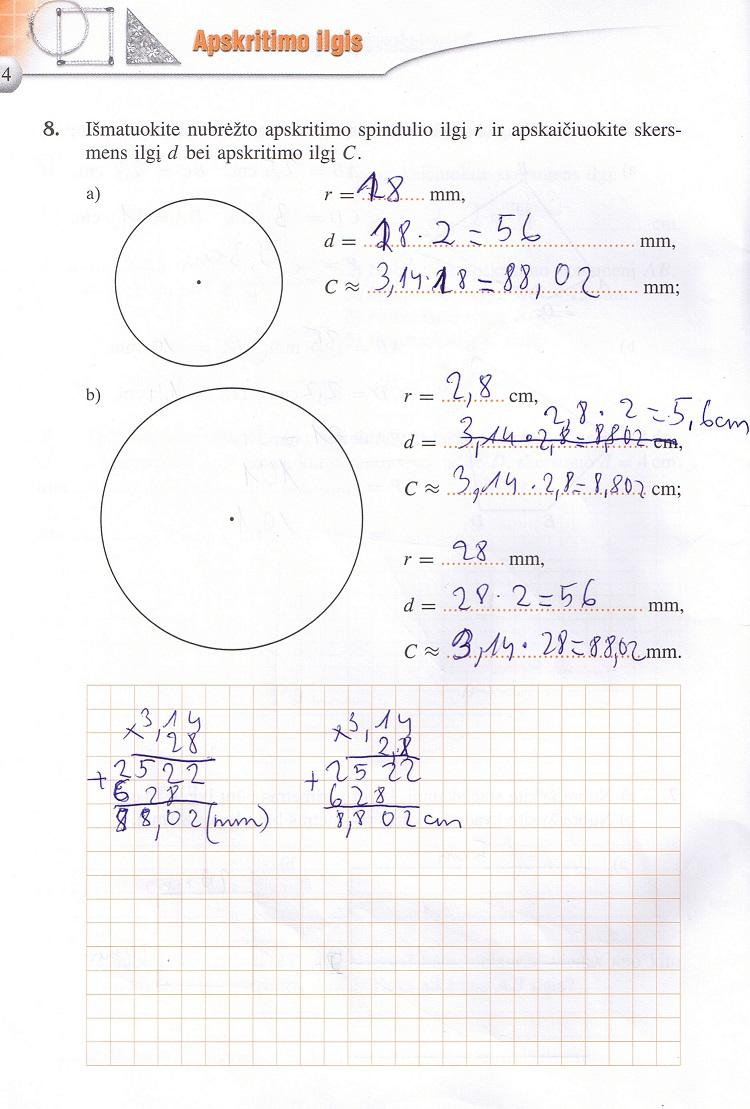 4
Apskritimo ilgis
8. Išmatuokite nubrėžto apskritimo spindulio ilgį r ir apskaičiuokite skers-
mens ilgį d bei apskritimo ilgį C.
a)
r = 18 mm,
d = 18 · 2 = 56 mm,
C ≈ 3,14 · 18 = 88,02 mm;
b)
r = 2,8 cm,
2,8 · 2 = 5,6 cm
d = 3,14 · 2,8 = 8,802 cm,
C ≈ 3,14 · 2,8 = 8,802 cm;
r = 28 mm,
d = 28 · 2 = 56 mm,
C ≈ 3,14 · 28 = 88,02 mm.
× 3,14 × 3,14
28 2,8
+ 2522 + 2522
628 628
88,02 (mm) 8,802 cm